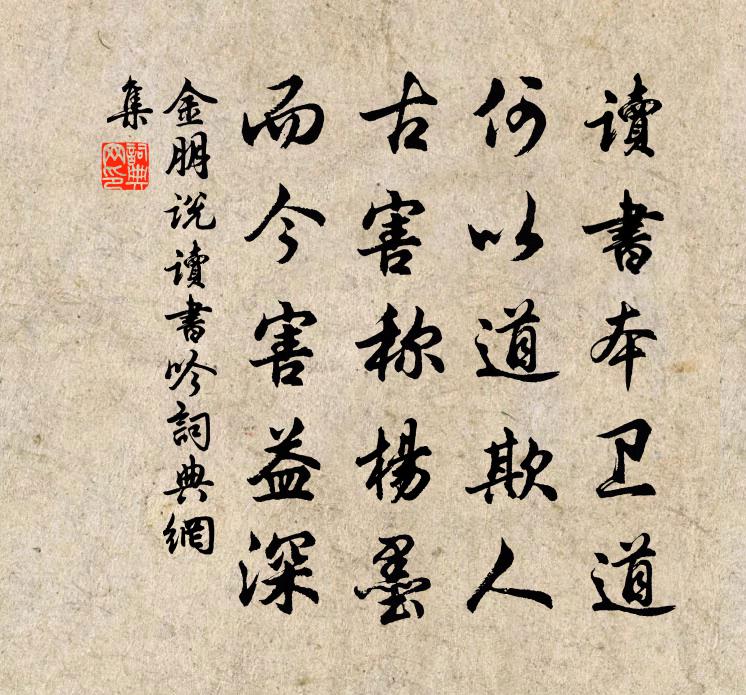 讀書本卫道
何以道欺人
古害称楊墨
而今害益深
金朋说讀書吟詞典網
集
詞典
网印